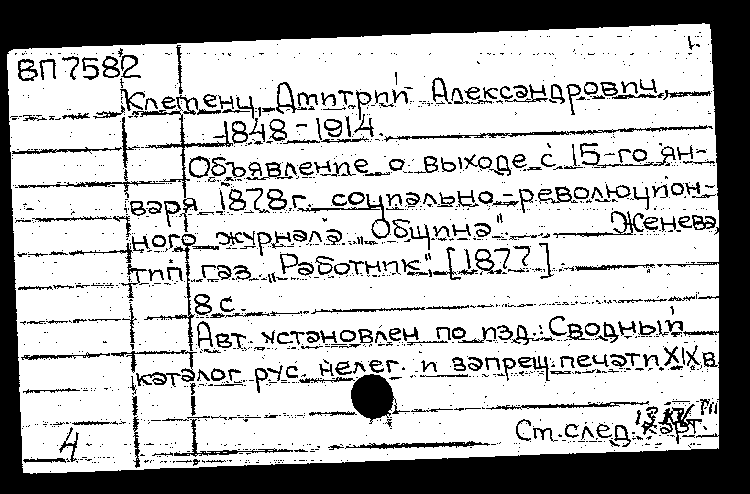 ВП7582
Клеменц, Дмитрий Александрович,
1848-1914.
Объявление о выходе с 15-го ян-
варя 1878г. социально-революцион-
ного журнала „Община". Женева,
тип. газ. „Работник", [1877].
8 с.
Авт. установлен по изд.: Сводный
каталог рус. нелег. и запрещ. печати XIX в.
4
Ст. след. карт.